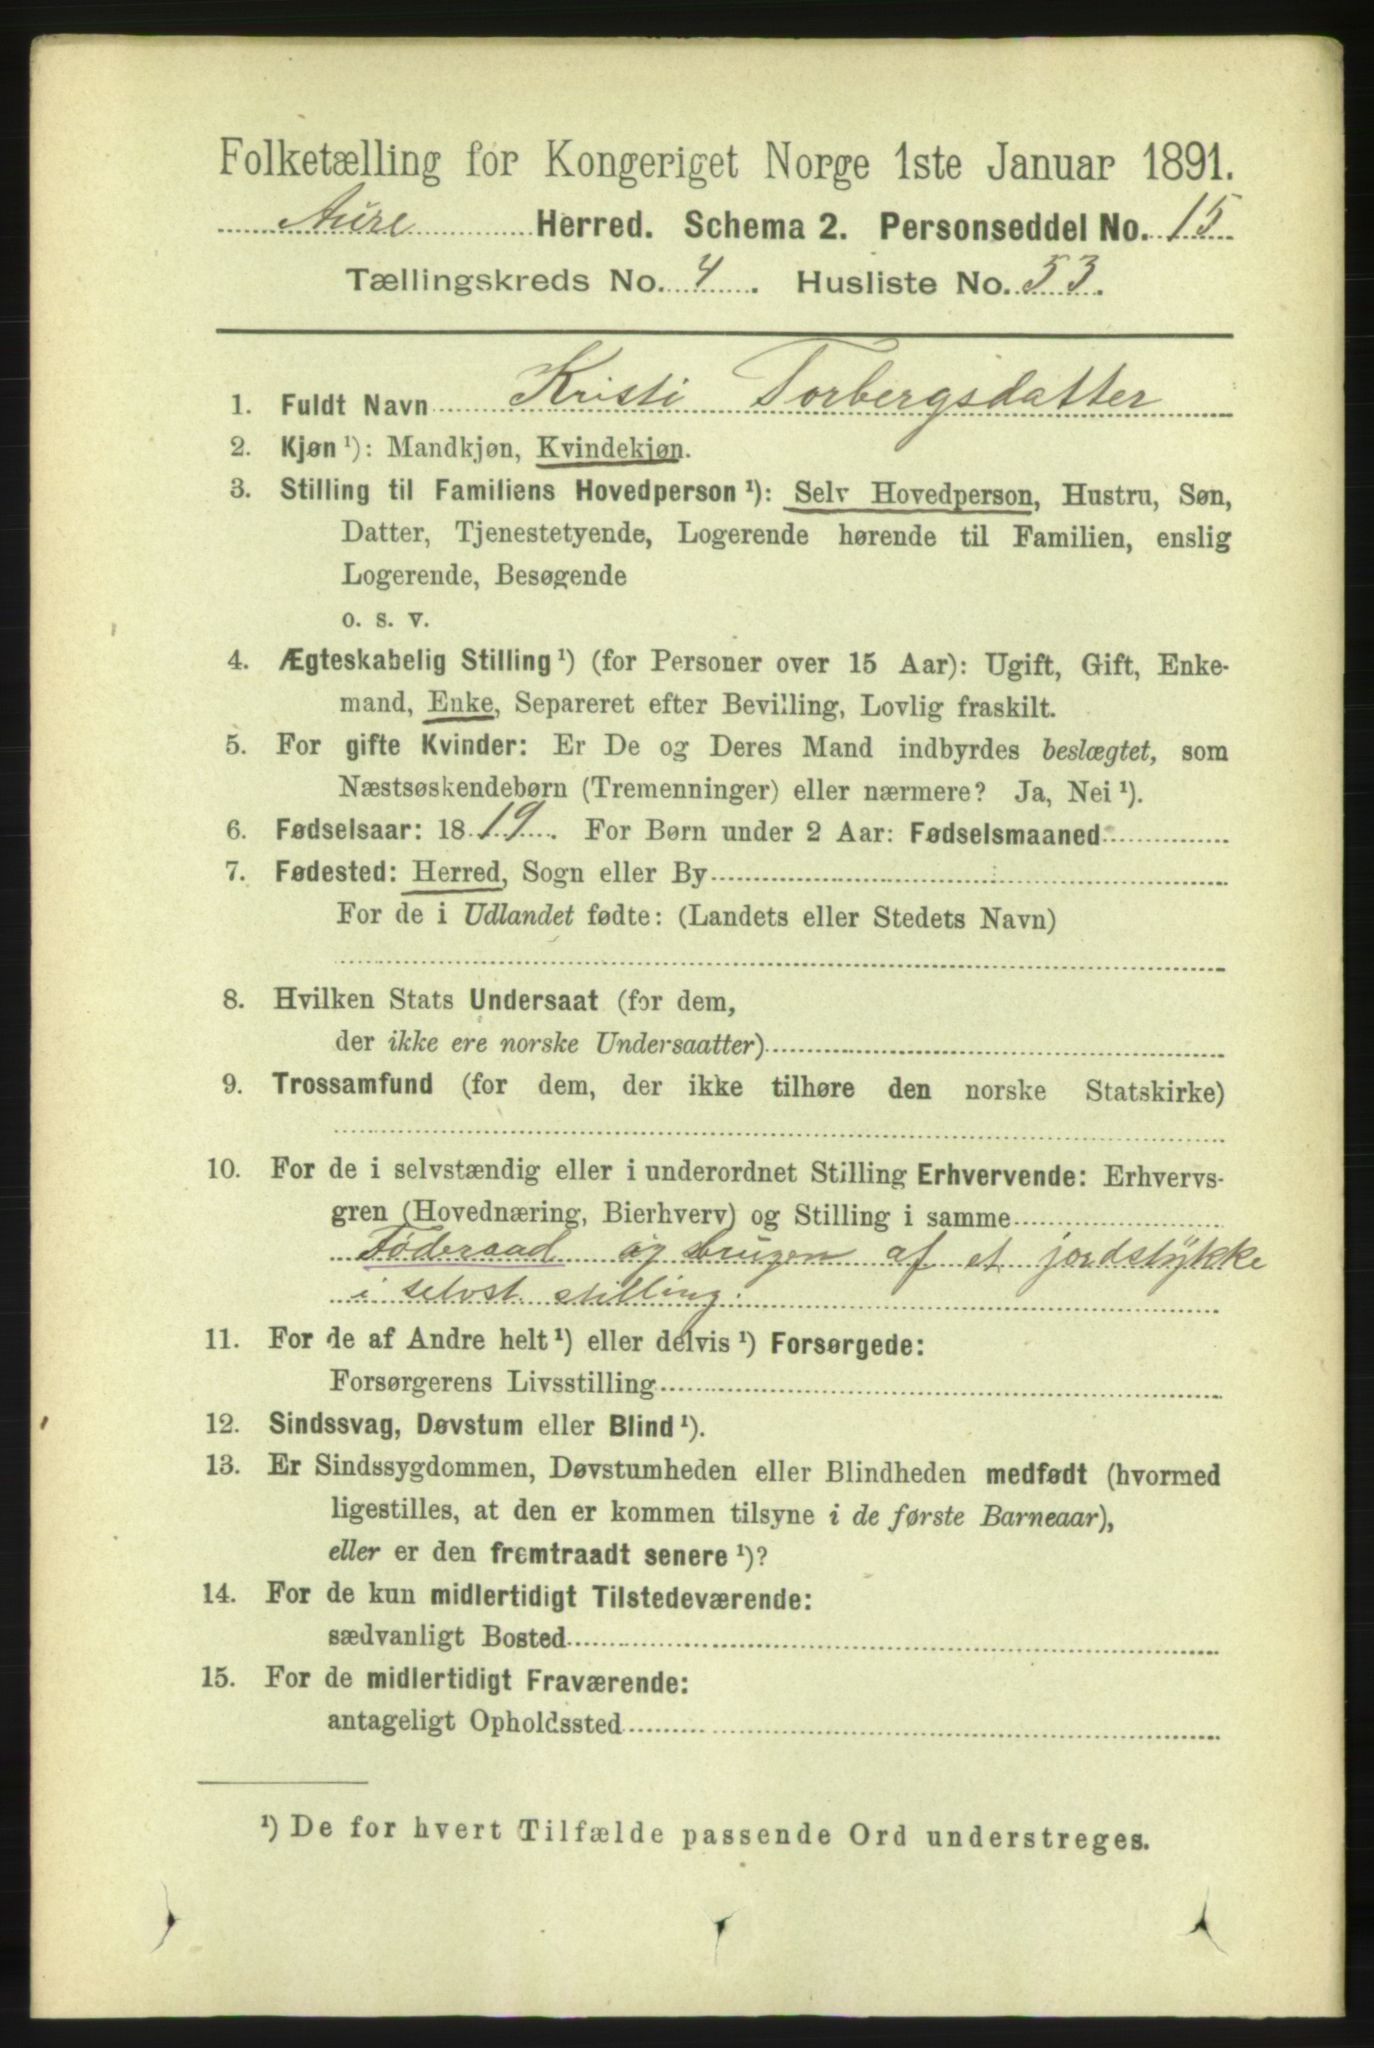 Folketælling for Kongeriget Norge 1ste Januar 1891.
Aure Herred. Schema 2. Personseddel No. 15
Tællingskreds No. 4. Husliste No. 53.
1. Fuldt Navn Kristi Torbergsdatter
2. Kjøn ¹): Mandkjøn, Kvindekjøn.
3. Stilling til Familiens Hovedperson ¹): Selv Hovedperson, Hustru, Søn,
Datter, Tjenestetyende, Logerende hørende til Familien, enslig
Logerende, Besøgende
o. s. v.
4. Ægteskabelig Stilling ¹) (for Personer over 15 Aar): Ugift, Gift, Enke-
mand, Enke, Separeret efter Bevilling, Lovlig fraskilt.
5. For gifte Kvinder: Er De og Deres Mand indbyrdes beslægtet, som
Næstsøskendebørn (Tremenninger) eller nærmere? Ja, Nei ¹).
6. Fødselsaar: 1819. For Børn under 2 Aar: Fødselsmaaned
7. Fødested: Herred, Sogn eller By
For de i Udlandet fødte: (Landets eller Stedets Navn)
8. Hvilken Stats Undersaat (for dem,
der ikke ere norske Undersaatter)
9. Trossamfund (for dem, der ikke tilhøre den norske Statskirke)
10. For de i selvstændig eller i underordnet Stilling Erhvervende: Erhvervs-
gren (Hovednæring, Bierhverv) og Stilling i samme
Føderaad og brugen af et jordstykke
i selvst. stilling.
11. For de af Andre helt ¹) eller delvis ¹) Forsørgede:
Forsørgerens Livsstilling
12. Sindssvag, Døvstum eller Blind ¹).
13. Er Sindssygdommen, Døvstumheden eller Blindheden medfødt (hvormed
ligestilles, at den er kommen tilsyne i de første Barneaar),
eller er den fremtraadt senere ¹)?
14. For de kun midlertidigt Tilstedeværende:
sædvanligt Bosted
15. For de midlertidigt Fraværende:
antageligt Opholdssted
¹) De for hvert Tilfælde passende Ord understreges.